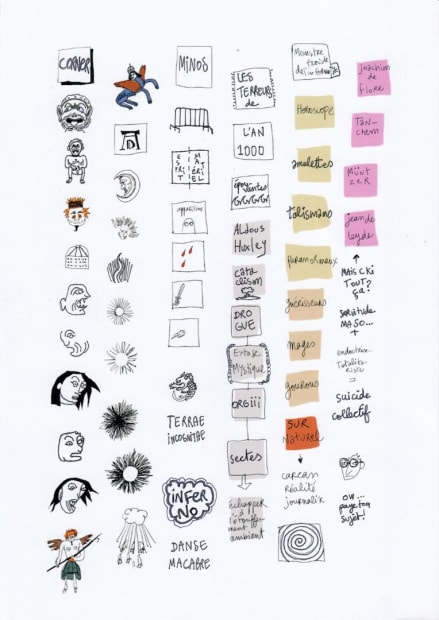 CORNER
AD
MINOS
ES
PRIT
MAT
ÉRIEL
apparition
TERRAE
INCOGNITAE
iNFER
NO
DANSE
MACABRE
LES
TERREURS
de
L'AN
1000
épou
vantes
ALDOUS
HuxLey
CATA
CLISM
DRO
GUE
Extase
Mystique
ORGiii
sectes
échapper
à
l'étouffe
ment
ambiant
Monstre
froid
Horoscope
amulettes
talismans
paranormaux
guérisseurs
mages
gourous
SUR
Naturel
carcan
Réalité
journalix
joachim
de
fiore
TAN-
chem
Münt
ZER
jean de
leyde
MAIS CKI
TOUT?
ça!
SERVITUDE
MASO...
+
=
suicide
collectif
ou...
paye ton
sujet!